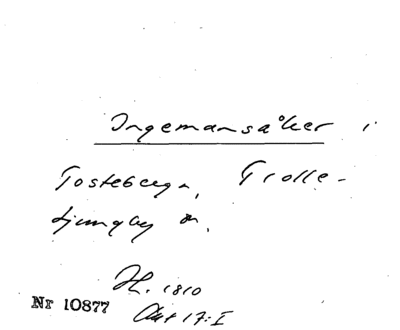 Ingemansåker i
Tosteberga, Trolle-
Ljungby sn.
H. 1810
Akt 17:I
Nr 10877